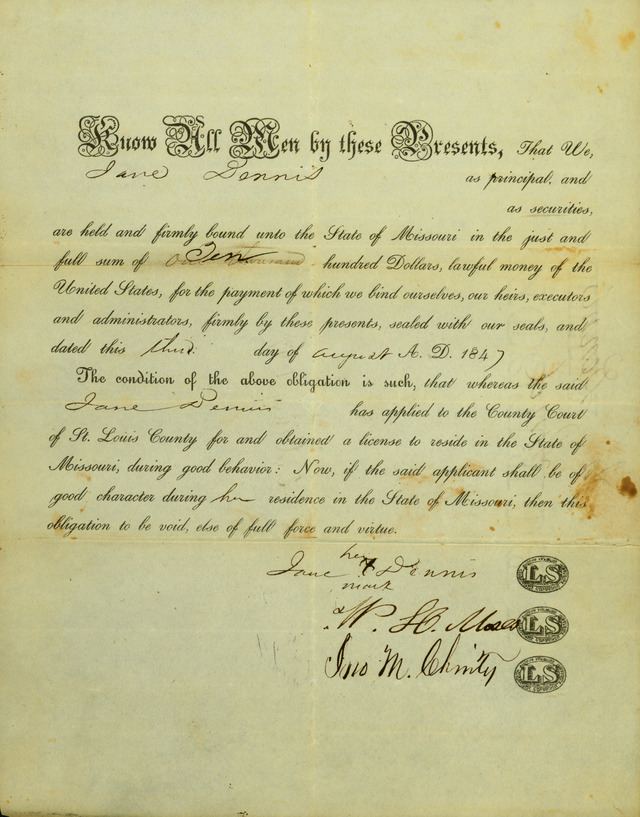 Know All Men by these Presents, That We,
Jane Dennis as principal, and
as securities,
are held and firmly bound unto the State of Missouri in the just and
full sum of Ten hundred Dollars, lawful money of the
United States, for the payment of which we bind ourselves, our heirs, executors
and administrators, firmly by these presents, sealed with our seals, and
dated this third day of August A. D. 1847
The condition of the above obligation is such, that whereas the said
Jane Dennis has applied to the County Court
of St. Louis County for and obtained a license to reside in the State of
Missouri, during good behavior: Now, if the said applicant shall be of
good character during her residence in the State of Missouri, then this
obligation to be void, else of full force and virtue.
her
Jane X Dennis LS
mark
W. H. LS
Jno M. LS